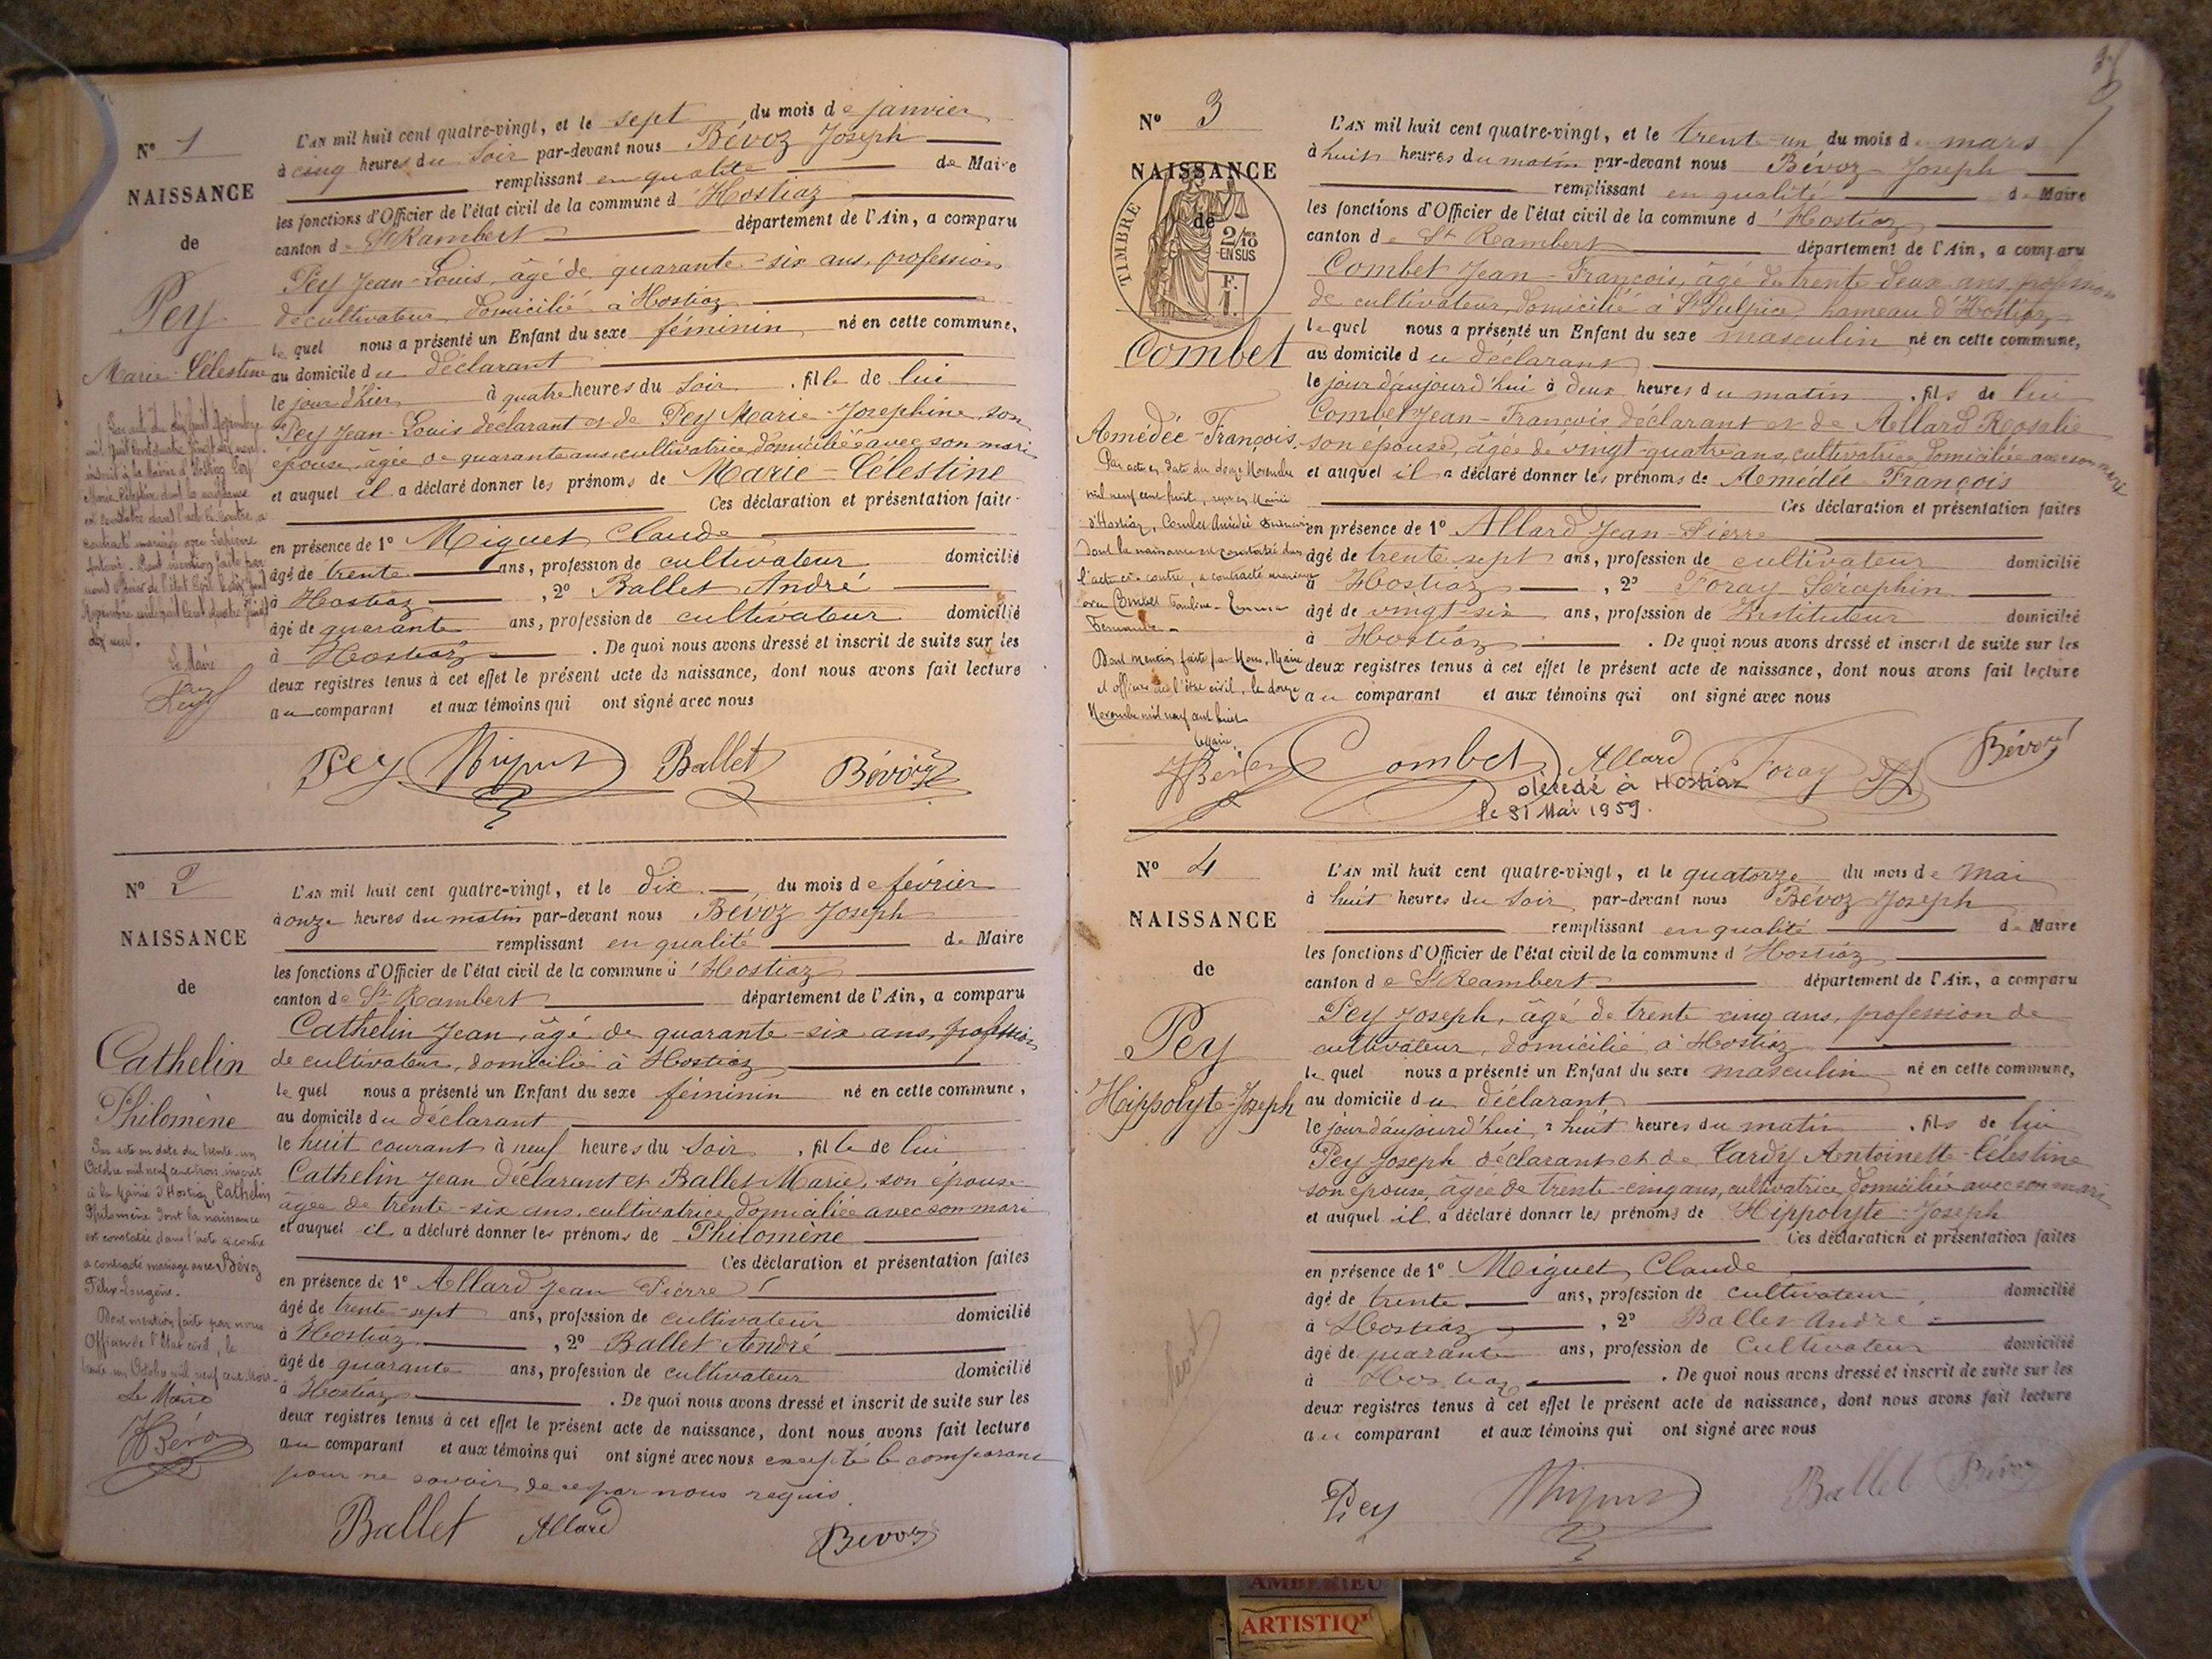 N° 1
NAISSANCE
de
Pey
Marie-Célestine
Le Maire
Pey
L'AN mil huit cent quatre-vingt, et le sept du mois de janvier
à cinq heures du soir par-devant nous Bévoz Joseph
remplissant en qualité de Maire
les fonctions d'Officier de l'état civil de la commune d'Hostiaz
canton de St Rambert département de l'Ain, a comparu
Pey Jean-Louis, âgé de quarante-six ans, profession
de cultivateur, domicilié à Hostiaz
lequel nous a présenté un Enfant du sexe féminin né en cette commune,
au domicile du déclarant
le jour d'hier à quatre heures du soir, fille de lui
Pey Jean-Louis déclarant et de Pey Marie-Josephine, son
épouse, âgée de quarante ans, cultivatrice domiciliée avec son mari
et auquel il a déclaré donner les prénoms de Marie-Célestine
Ces déclaration et présentation faites
en présence de 1° Miguet Claude
âgé de trente ans, profession de cultivateur domicilié
à Hostiaz, 2° Ballet André
âgé de quarante ans, profession de cultivateur domicilié
à Hostiaz. De quoi nous avons dressé et inscrit de suite sur les
deux registres tenus à cet effet le présent acte de naissance, dont nous avons fait lecture
au comparant et aux témoins qui ont signé avec nous
Pey Miguet Ballet Bévoz
N° 2
NAISSANCE
de
Cathelin
Philomène
Par acte en date du trente-un
Octobre mil neuf cent trois, inscrit
à la Mairie d'Hostiaz, Cathelin
Philomène dont la naissance
est constatée dans l'acte ci-contre
a contracté mariage avec Bévoz
Félix-Eugène.
Dont mention faite par nous
Officier de l'état civil, le
trente-un Octobre mil neuf cent trois
Le Maire
Bévoz
L'AN mil huit cent quatre-vingt, et le dix du mois de février
à onze heures du matin par-devant nous Bévoz Joseph
remplissant en qualité de Maire
les fonctions d'Officier de l'état civil de la commune d'Hostiaz
canton de St Rambert département de l'Ain, a comparu
Cathelin Jean, âgé de quarante-six ans, profession
de cultivateur, domicilié à Hostiaz
lequel nous a présenté un Enfant du sexe féminin né en cette commune,
au domicile du déclarant
le huit courant à neuf heures du soir, fille de lui
Cathelin Jean déclarant et Ballet Marie, son épouse
âgée de trente-six ans, cultivatrice domiciliée avec son mari
et auquel il a déclaré donner les prénoms de Philomène
Ces déclaration et présentation faites
en présence de 1° Allard Jean Pierre
âgé de trente-sept ans, profession de cultivateur domicilié
à Hostiaz, 2° Ballet André
âgé de quarante ans, profession de cultivateur domicilié
à Hostiaz. De quoi nous avons dressé et inscrit de suite sur les
deux registres tenus à cet effet le présent acte de naissance, dont nous avons fait lecture
au comparant et aux témoins qui ont signé avec nous excepté le comparant
pour ne savoir de ce par nous requis.
Ballet Allard Bévoz
N° 3
NAISSANCE
de
TIMBRE
2/10
EN SUS
F.
1.
Combet
Amédée-François
Par acte en date du douze Novembre
mil neuf cent huit, reçu en Mairie
d'Hostiaz, Combet Amédée François
dont la naissance est constatée dans
l'acte ci-contre, a contracté mariage
avec Combet
Dont mention faite par Nous, Maire
et officier de l'état civil, le douze
Novembre mil neuf cent huit
Le Maire
L'AN mil huit cent quatre-vingt, et le trente-un du mois de mars
à huit heures du matin par-devant nous Bévoz Joseph
remplissant en qualité de Maire
les fonctions d'Officier de l'état civil de la commune d'Hostiaz
canton de St Rambert département de l'Ain, a comparu
Combet Jean-François, âgé de trente deux ans, profession
de cultivateur, domicilié à St Sulpice, hameau d'Hostiaz
lequel nous a présenté un Enfant du sexe masculin né en cette commune,
au domicile du déclarant
le jour d'aujourd'hui à deux heures du matin, fils de lui
Combet Jean-François déclarant et de Allard Rosalie
son épouse, âgée de vingt-quatre ans, cultivatrice, domiciliée avec son mari
et auquel il a déclaré donner les prénoms de Amédée François
Ces déclaration et présentation faites
en présence de 1° Allard Jean-Pierre
âgé de trente sept ans, profession de cultivateur domicilié
à Hostiaz, 2° Foray Séraphin
âgé de vingt-six ans, profession de Instituteur domicilié
à Hostiaz. De quoi nous avons dressé et inscrit de suite sur les
deux registres tenus à cet effet le présent acte de naissance, dont nous avons fait lecture
au comparant et aux témoins qui ont signé avec nous
Bévoz Combet Allard Foray Bévoz
décédé à Hostiaz
le 31 Mai 1959.
N° 4
NAISSANCE
de
Pey
Hippolyte-Joseph
L'AN mil huit cent quatre-vingt, et le quatorze du mois de mai
à huit heures du soir par-devant nous Bévoz Joseph
remplissant en qualité de Maire
les fonctions d'Officier de l'état civil de la commune d'Hostiaz
canton de St Rambert département de l'Ain, a comparu
Pey Joseph, âgé de trente cinq ans, profession de
cultivateur, domicilié à Hostiaz
lequel nous a présenté un Enfant du sexe masculin né en cette commune,
au domicile du déclarant
le jour d'aujourd'hui à huit heures du matin, fils de lui
Pey Joseph déclarant et de Tardy Antoinette-Célestine
son épouse, âgée de trente-cinq ans, cultivatrice, domiciliée avec son mari
et auquel il a déclaré donner les prénoms de Hippolyte-Joseph
Ces déclaration et présentation faites
en présence de 1° Miguet Claude
âgé de trente ans, profession de cultivateur domicilié
à Hostiaz, 2° Ballet André
âgé de quarante ans, profession de Cultivateur domicilié
à Hostiaz. De quoi nous avons dressé et inscrit de suite sur les
deux registres tenus à cet effet le présent acte de naissance, dont nous avons fait lecture
au comparant et aux témoins qui ont signé avec nous
Pey Miguet Ballet Bévoz
AMBERIEU
ARTISTIQ